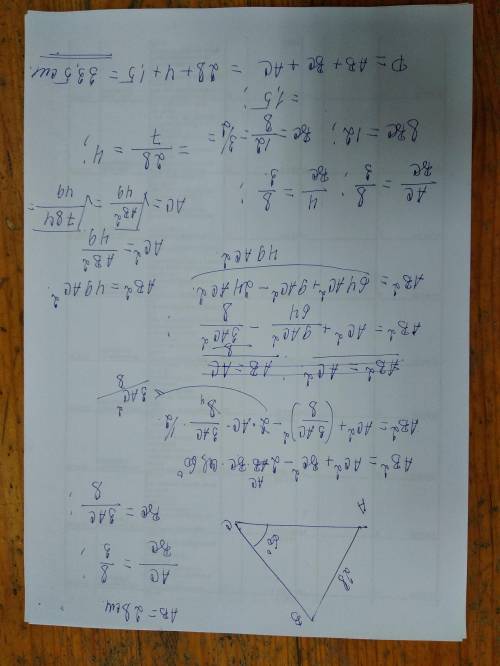 AB = 28 см
AC/BC = 8/3 ;
BC = 3AC/8 ;
B
28
60°
A
C
AB² = AC² + BC² - 2AC·BC·cos60°
AB² = AC² + (3AC/8)² - 2·AC·3AC/8·1/2
3AC²/8
AB² = AC² ; AB = AC
AB² = AC² + 9AC²/64 - 3AC²/8 ;
AB² = 64AC² + 9AC² - 24AC²
49AC²
AB² = 49AC²
AC² = AB²/49
AC = √AB²/49 = √784/49 =
= 28/7 = 4 ;
AC/BC = 8/3 ; 4/BC = 8/3 ;
8BC = 12 ; BC = 12/8 = 3/2 =
= 1,5 ;
P = AB + BC + AC = 28 + 4 + 1,5 = 33,5 см.